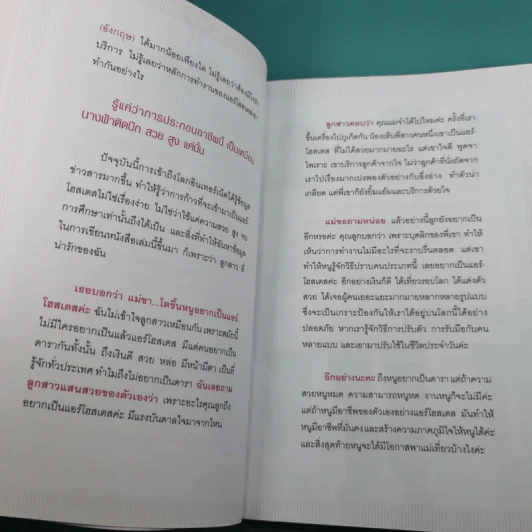 (อังกฤษ) ได้มากน้อยเพียงใด ไม่รู้เลยว่าต้องมีใจรัก
บริการ ไม่รู้เลยว่าหลักการทำงานของแอร์โฮสเตส
ทำกันอย่างไร
รู้แค่ว่าการประกอบอาชีพนี้ เป็นเหมือน
นางฟ้าติดปีก สวย สูง แค่นั้น
ปัจจุบันนี้การเข้าถึงโลกอินเทอร์เน็ตได้รู้ข้อมูล
ข่าวสารมากขึ้น ทำให้รู้ว่าการก้าวที่จะเข้ามาเป็นแอร์
โฮสเตสไม่ใช่เรื่องง่าย ไม่ใช่ว่าใช้แค่ความสวย สูง จบ
การศึกษาเท่านั้นถึงได้เป็น และสิ่งที่ทำให้ฉันหาข้อมูล
ในการเขียนหนังสือเล่มนี้ขึ้นมา ก็เพราะว่า ลูกสาว ที่
น่ารักของฉัน
เธอบอกว่า แม่ขา...โตขึ้นหนูอยากเป็นแอร์
โฮสเตสค่ะ ฉันไม่เข้าใจลูกสาวเหมือนกัน เพราะสมัยนี้
ไม่มีใครอยากเป็นแล้วแอร์โฮสเตส มีแต่คนอยากเป็น
ดารากันทั้งนั้น ถึงเงินดี สวย หล่อ มีหน้ามีตา เป็นที่
รู้จักทั่วประเทศ ทำไมถึงไม่อยากเป็นดารา ฉันเลยถาม
ลูกสาวแสนสวยของตัวเองว่า เพราะอะไรคุณลูกถึง
อยากเป็นแอร์โฮสเตสค่ะ มีแรงบันดาลใจมาจากไหน
ลูกสาวตอบว่า คุณแม่จำได้ไปไหมค่ะ ครั้งที่เรา
ขึ้นเครื่องไปภูเก็ตกัน น้องเห็นพี่สาวคนหนึ่งเขาเป็นแอร์
โฮสเตส ที่ไม่ได้สวยมากมายอะไร แต่เขาใจดี พูดจา
ไพเราะ เขาบริการลูกค้าจากใจ ไม่ว่าลูกค้าที่นั่งถัดจาก
เราไปเรื่องมากเบ่งพองตัวอย่างกับอึ่งอ่าง ทำตัวน่า
เกลียด แต่พี่เขาก็ยังยิ้มแย้มและบริการด้วยใจ
แม่ขอถามหน่อย แล้วอย่างนี้ลูกยังอยากเป็น
อีกหรอค่ะ คุณลูกบอกว่า เพราะบุคลิกของพี่เขา ทำให้
เห็นว่าการทำงานไม่มีอะไรที่จะราบรื่นตลอด แต่เขา
ทำให้หนูรู้จักวิธีปราบคนประเภทนี้ เลยอยากเป็นแอร์-
โฮสเตสค่ะ อีกอย่างเงินก็ดี ได้เที่ยวรอบโลก ได้แต่งตัว
สวย ได้เจอผู้คนเยอะแยะมากมายหลากหลายรูปแบบ
ซึ่งจะเป็นเกราะป้องกันให้เราได้อยู่บนโลกนี้ได้อย่าง
ปลอดภัย หากเรารู้จักวิธีการปรับตัว การรับมือกับคน
หลายแบบ และเอามาปรับใช้ในชีวิตประจำวันค่ะ
อีกอย่างนะคะ ถึงหนูอยากเป็นดารา แต่ถ้าความ
สวยหนูหมด ความสามารถหนูหด งานหนูก็จะไม่มีค่ะ
แต่ถ้าหนูมีอาชีพของตัวเองอย่างแอร์โฮสเตส มันทำให้
หนูมีอาชีพที่มั่นคงและสร้างความภาคภูมิใจให้หนูได้ค่ะ
และสิ่งสุดท้ายหนูจะได้มีโอกาสพาแม่เที่ยวบ้างไงค่ะ